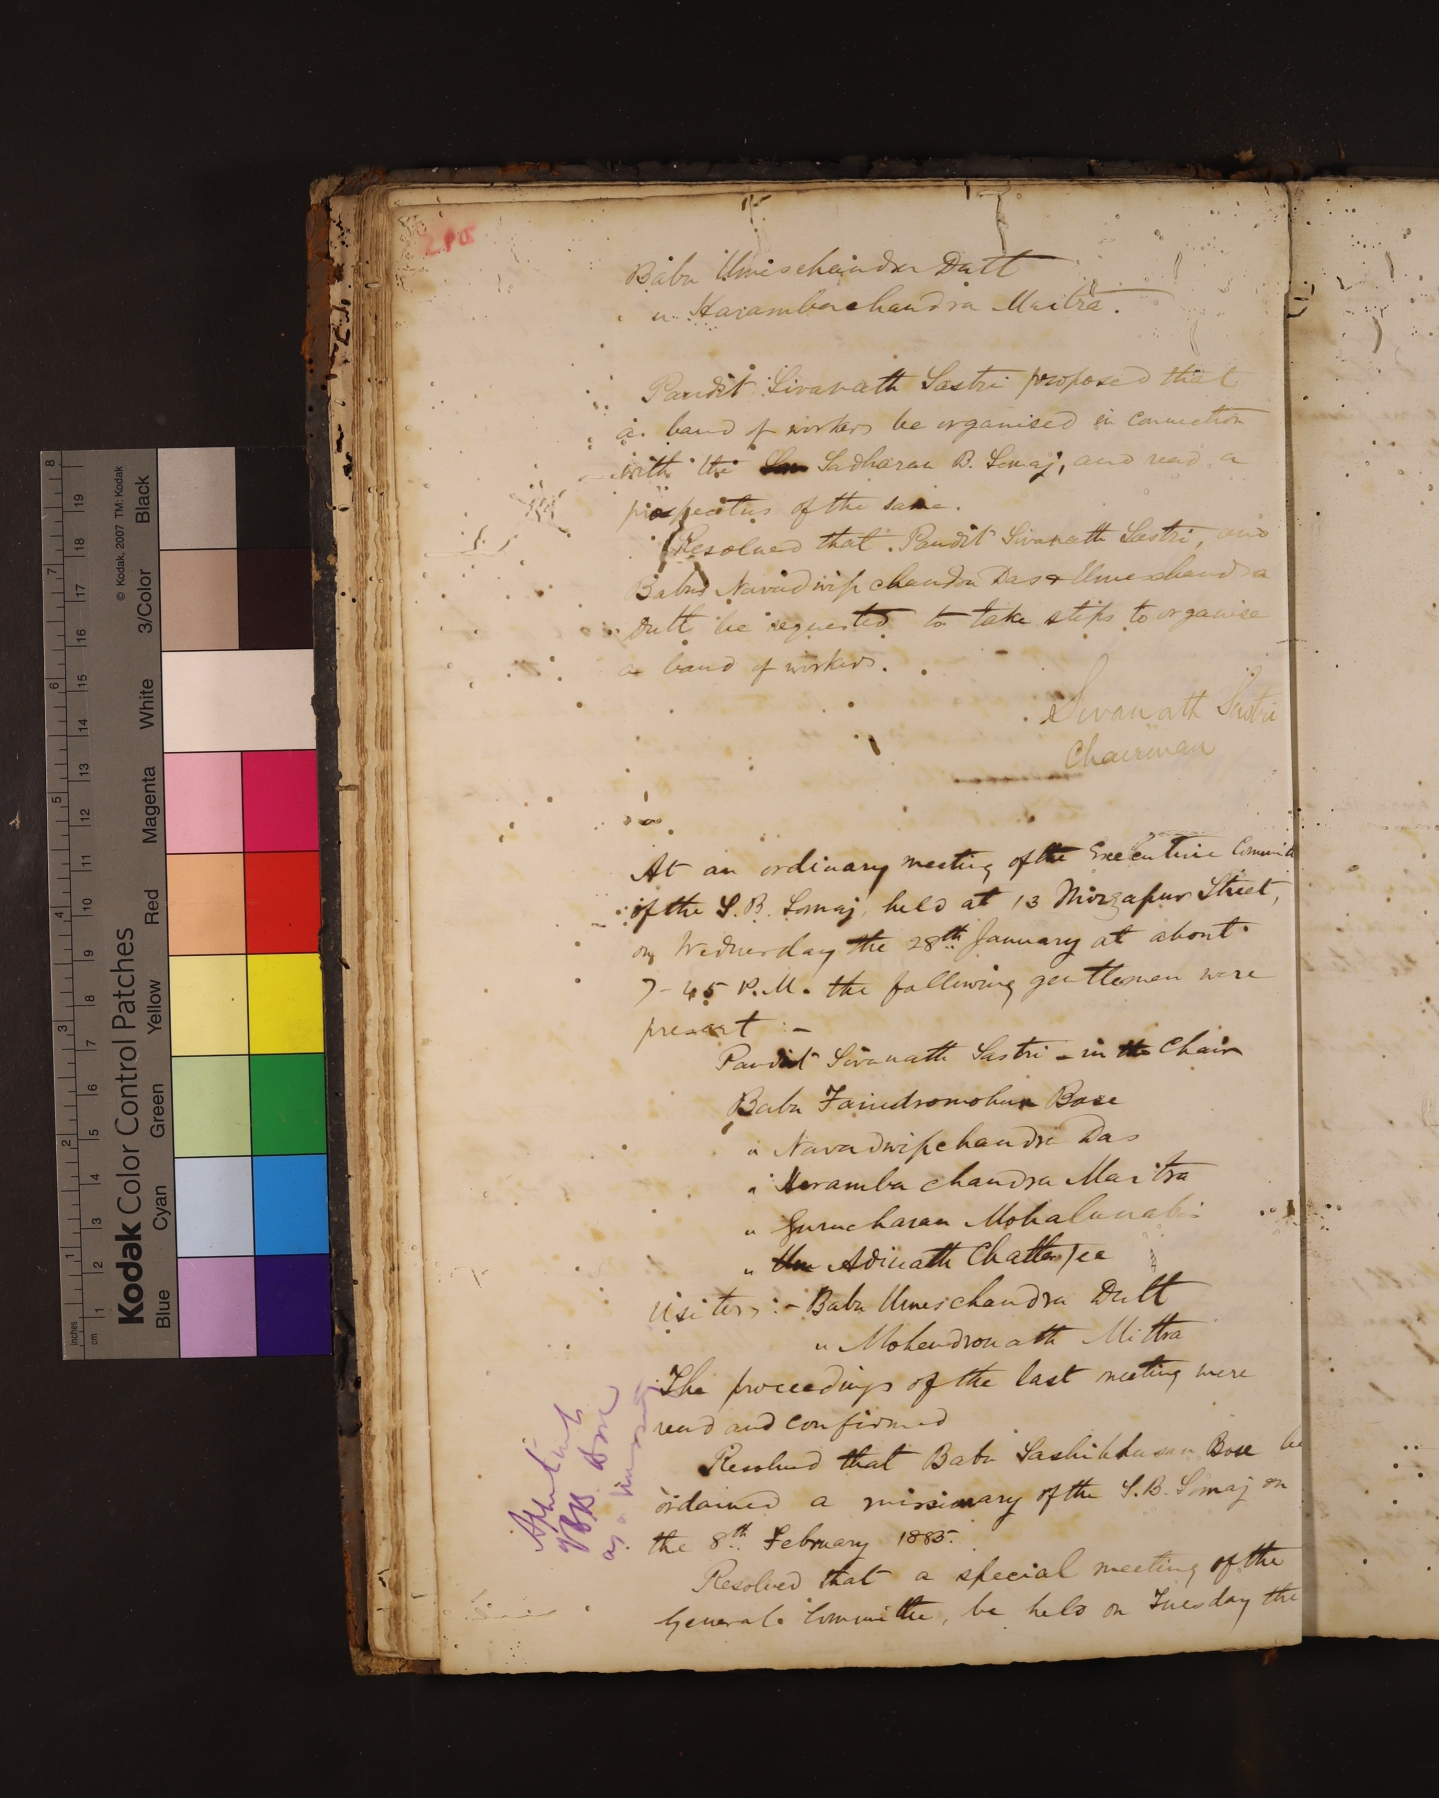 210
Babu Umeschandra Dutt
" Harambachandra Maitra.
Pandit Sivanath Sastri proposed that
a band of workers be organised in connection
with the Sadharan B. Somaj, and read a
prospectus of the same.
Resolved that Pandit Sivanath Sastri, and
Babus Navadwip chandra Das & Umeschandra
Dutt be requested to take steps to organise
a band of workers.
Sivanath Sastri
Chairman
At an ordinary meeting of the Executive Commit
of the S. B. Somaj, held at 13 Mirzapur Street,
on Wednesday the 28th January at about
7-45 P.M. the following gentlemen were
present :-
Pandit Sivanath Sastri - in the Chair
Babu Jaindromohun Bose
" Navadwipchandra Das
" Heramba chandra Maitra
" Gurucharan Mohalanabis
" Adinath Chatterjee
Visitors :- Babu Umeschandra Dutt
" Mohendronath Mittra
The proceedings of the last meeting were
read and confirmed
Resolved that Babu Sashibhusan Bose be
ordained a missionary of the S. B. Somaj on
the 8th February 1885.
Resolved that a special meeting of the
General Committee, be held on Tuesday the
Appointment
Bose
as a missionary
Kodak Color Control Patches
© Kodak, 2007 TM: Kodak
Blue Cyan Green Yellow Red Magenta White 3/Color Black
inches 1 2 3 4 5 6 7 8
cm 1 2 3 4 5 6 7 8 9 10 11 12 13 14 15 16 17 18 19